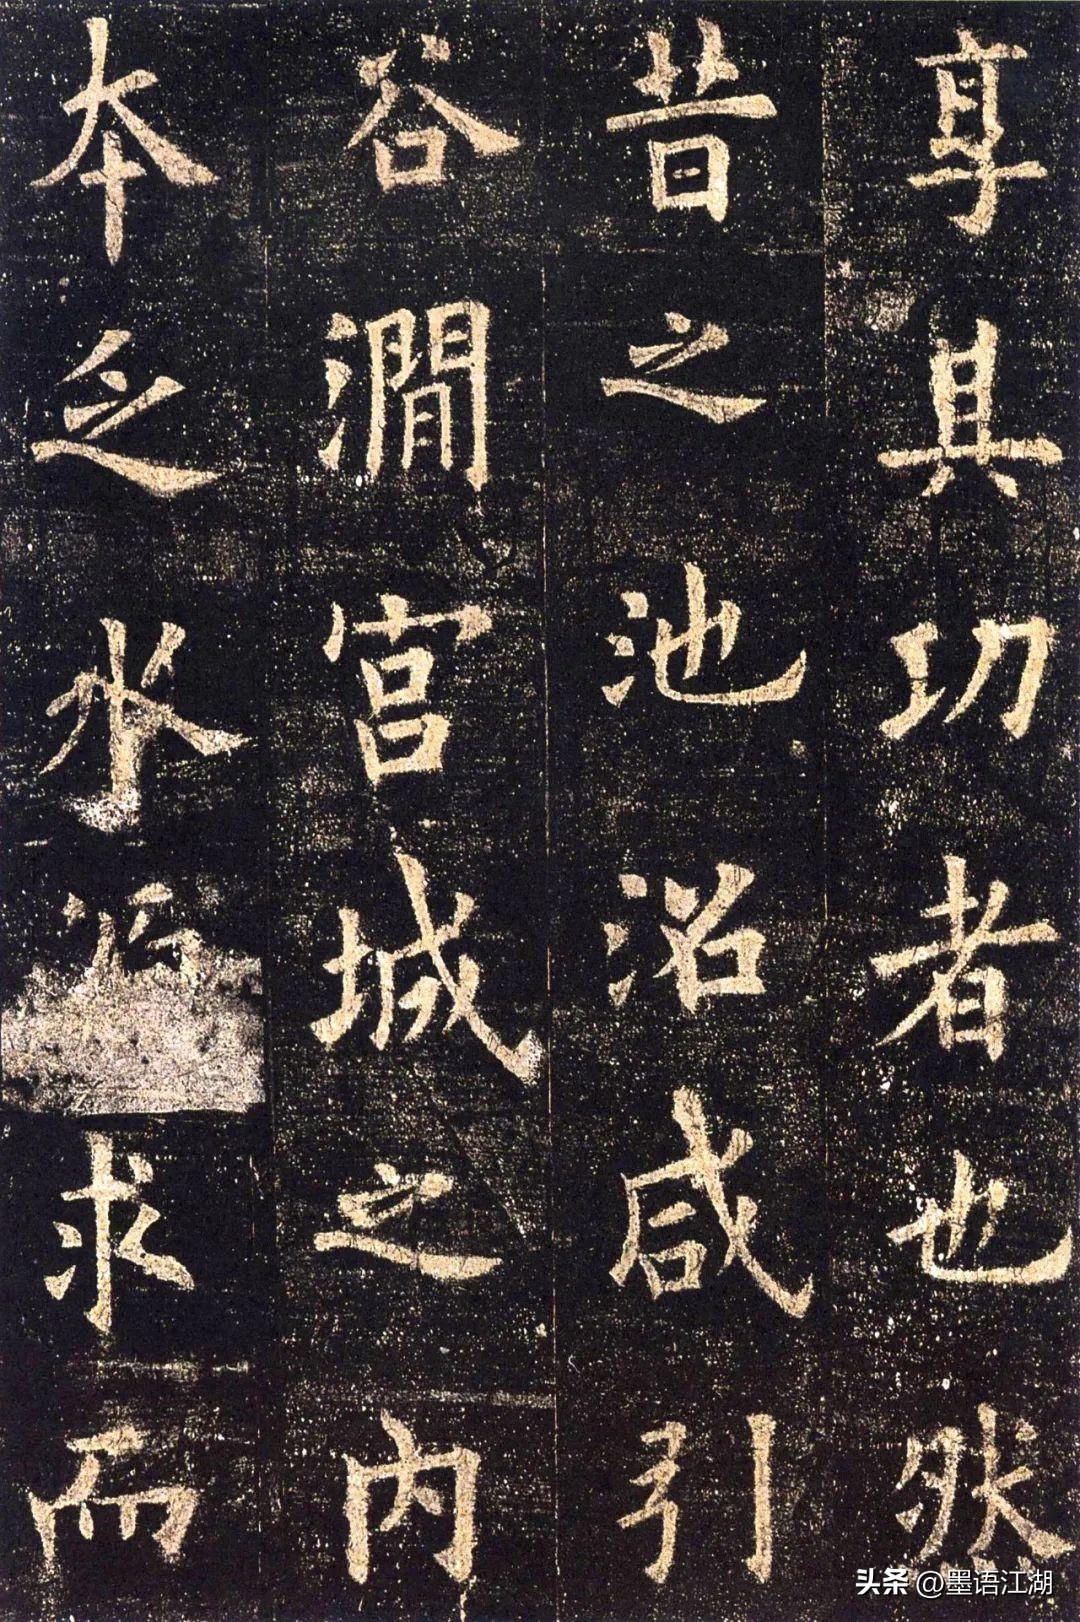 享其功者也然
昔之池沼咸引
谷澗宫城之内
本乏水源求而
头条 @墨语江湖